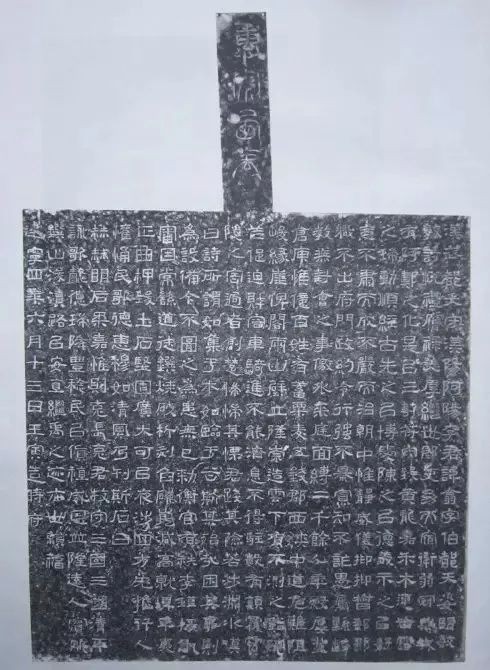 惠安西表
漢武都太守漢陽阿陽李君諱翕字伯都天姿明敏
敦詩悅禮膺祿美厚繼世郎吏幼而宿衛弱冠典城
有阿鄭之化是以三剖符守致黃龍嘉禾木連甘露
之瑞動順經古先之以博愛陳之以德義示之以好
惡不肅而成不嚴而治朝中惟靜威儀抑抑督郵部
職不出府門政約令行強不暴寡知不詐愚屬縣趨
教無對會之事徼外來庭面縛二千餘人年穀屢登
倉庾惟億百姓有蓄粟麥五錢郡西狹中道危難阻
峻緣崖俾閣兩山壁立隆崇造雲下有不測之谿阨
芒促迫財容車騎進不能濟息不得駐數有顛覆霣
隧之害過者創楚惴惴其慄君踐其險若涉淵冰歎
曰詩所謂如集于木如臨于谷斯其殆哉困其事則
為設備今不圖之為患無已敕衡官有秩李瑾掾仇
審因常繇道徒鐉燒破析刻臽磪嵬減高就埤平夷
正曲柙致土石堅固廣大可以夜涉四方无雍行人
懽悀民歌德惠穆如清風乃刊斯石曰
赫赫明后柔嘉惟則克長克君牧守三國三國清平
詠歌懿德瑞降豐稔民以貨稙威恩並隆遠人賓服
鐉山浚瀆路以安直繼禹之迹亦世賴福
建寧四年六月十三日壬寅造時府